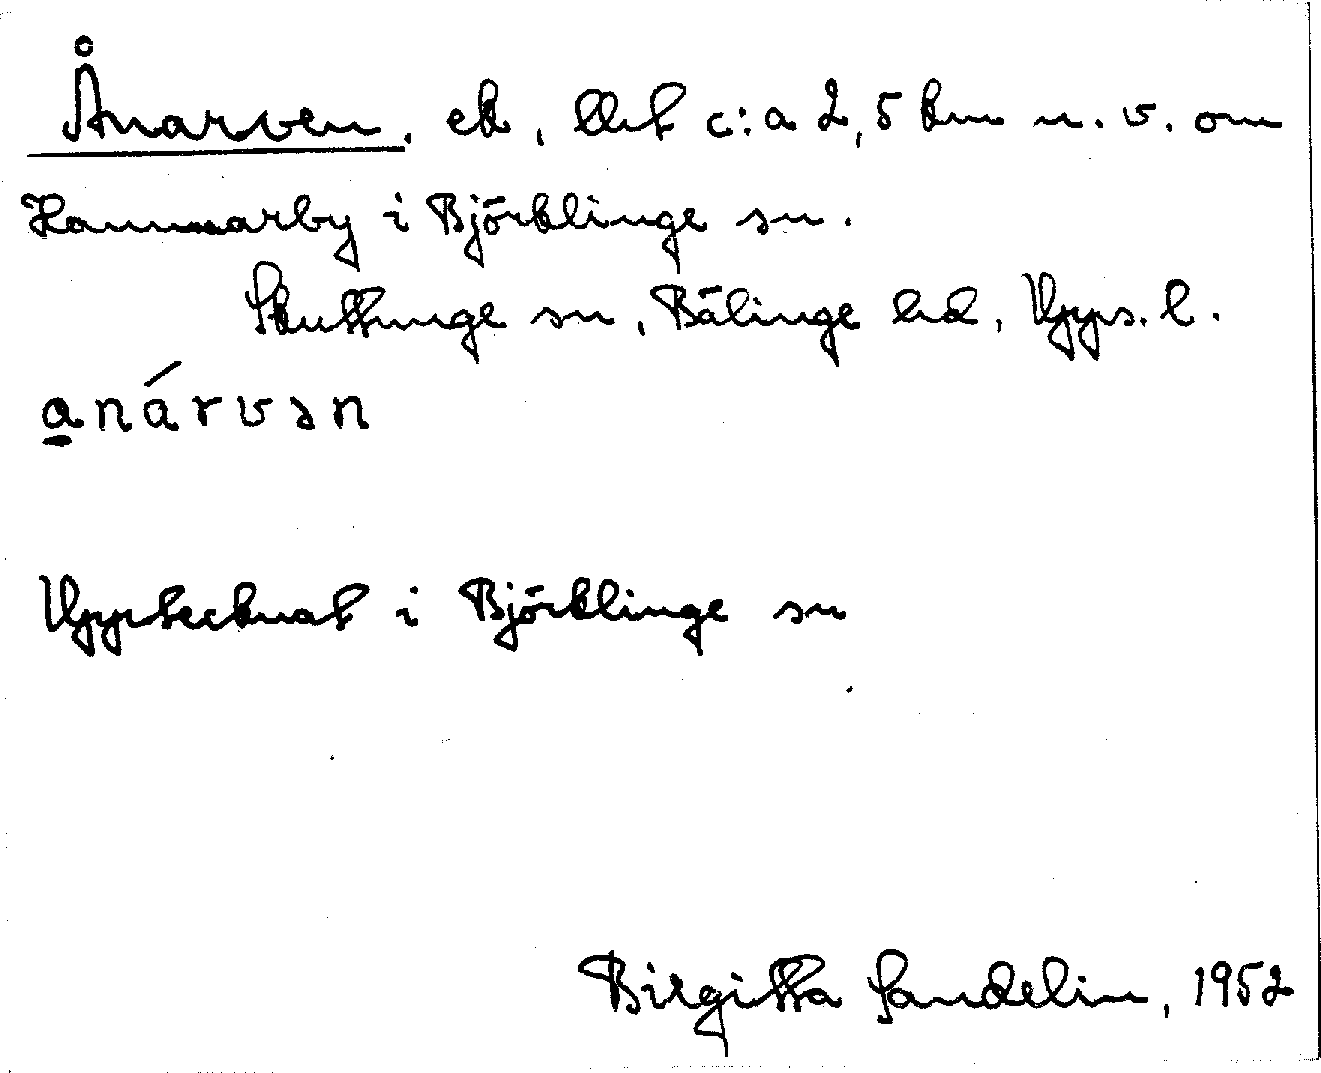 Ånarven, ek, Utsk c:a 2,5 km n.v. om
Hammarby i Björklinge sn.
Skuttunge sn, Bälinge hd, Upps. l.
anárvən
Upptecknat i Björklinge sn
Birgitta Sandelin, 1952